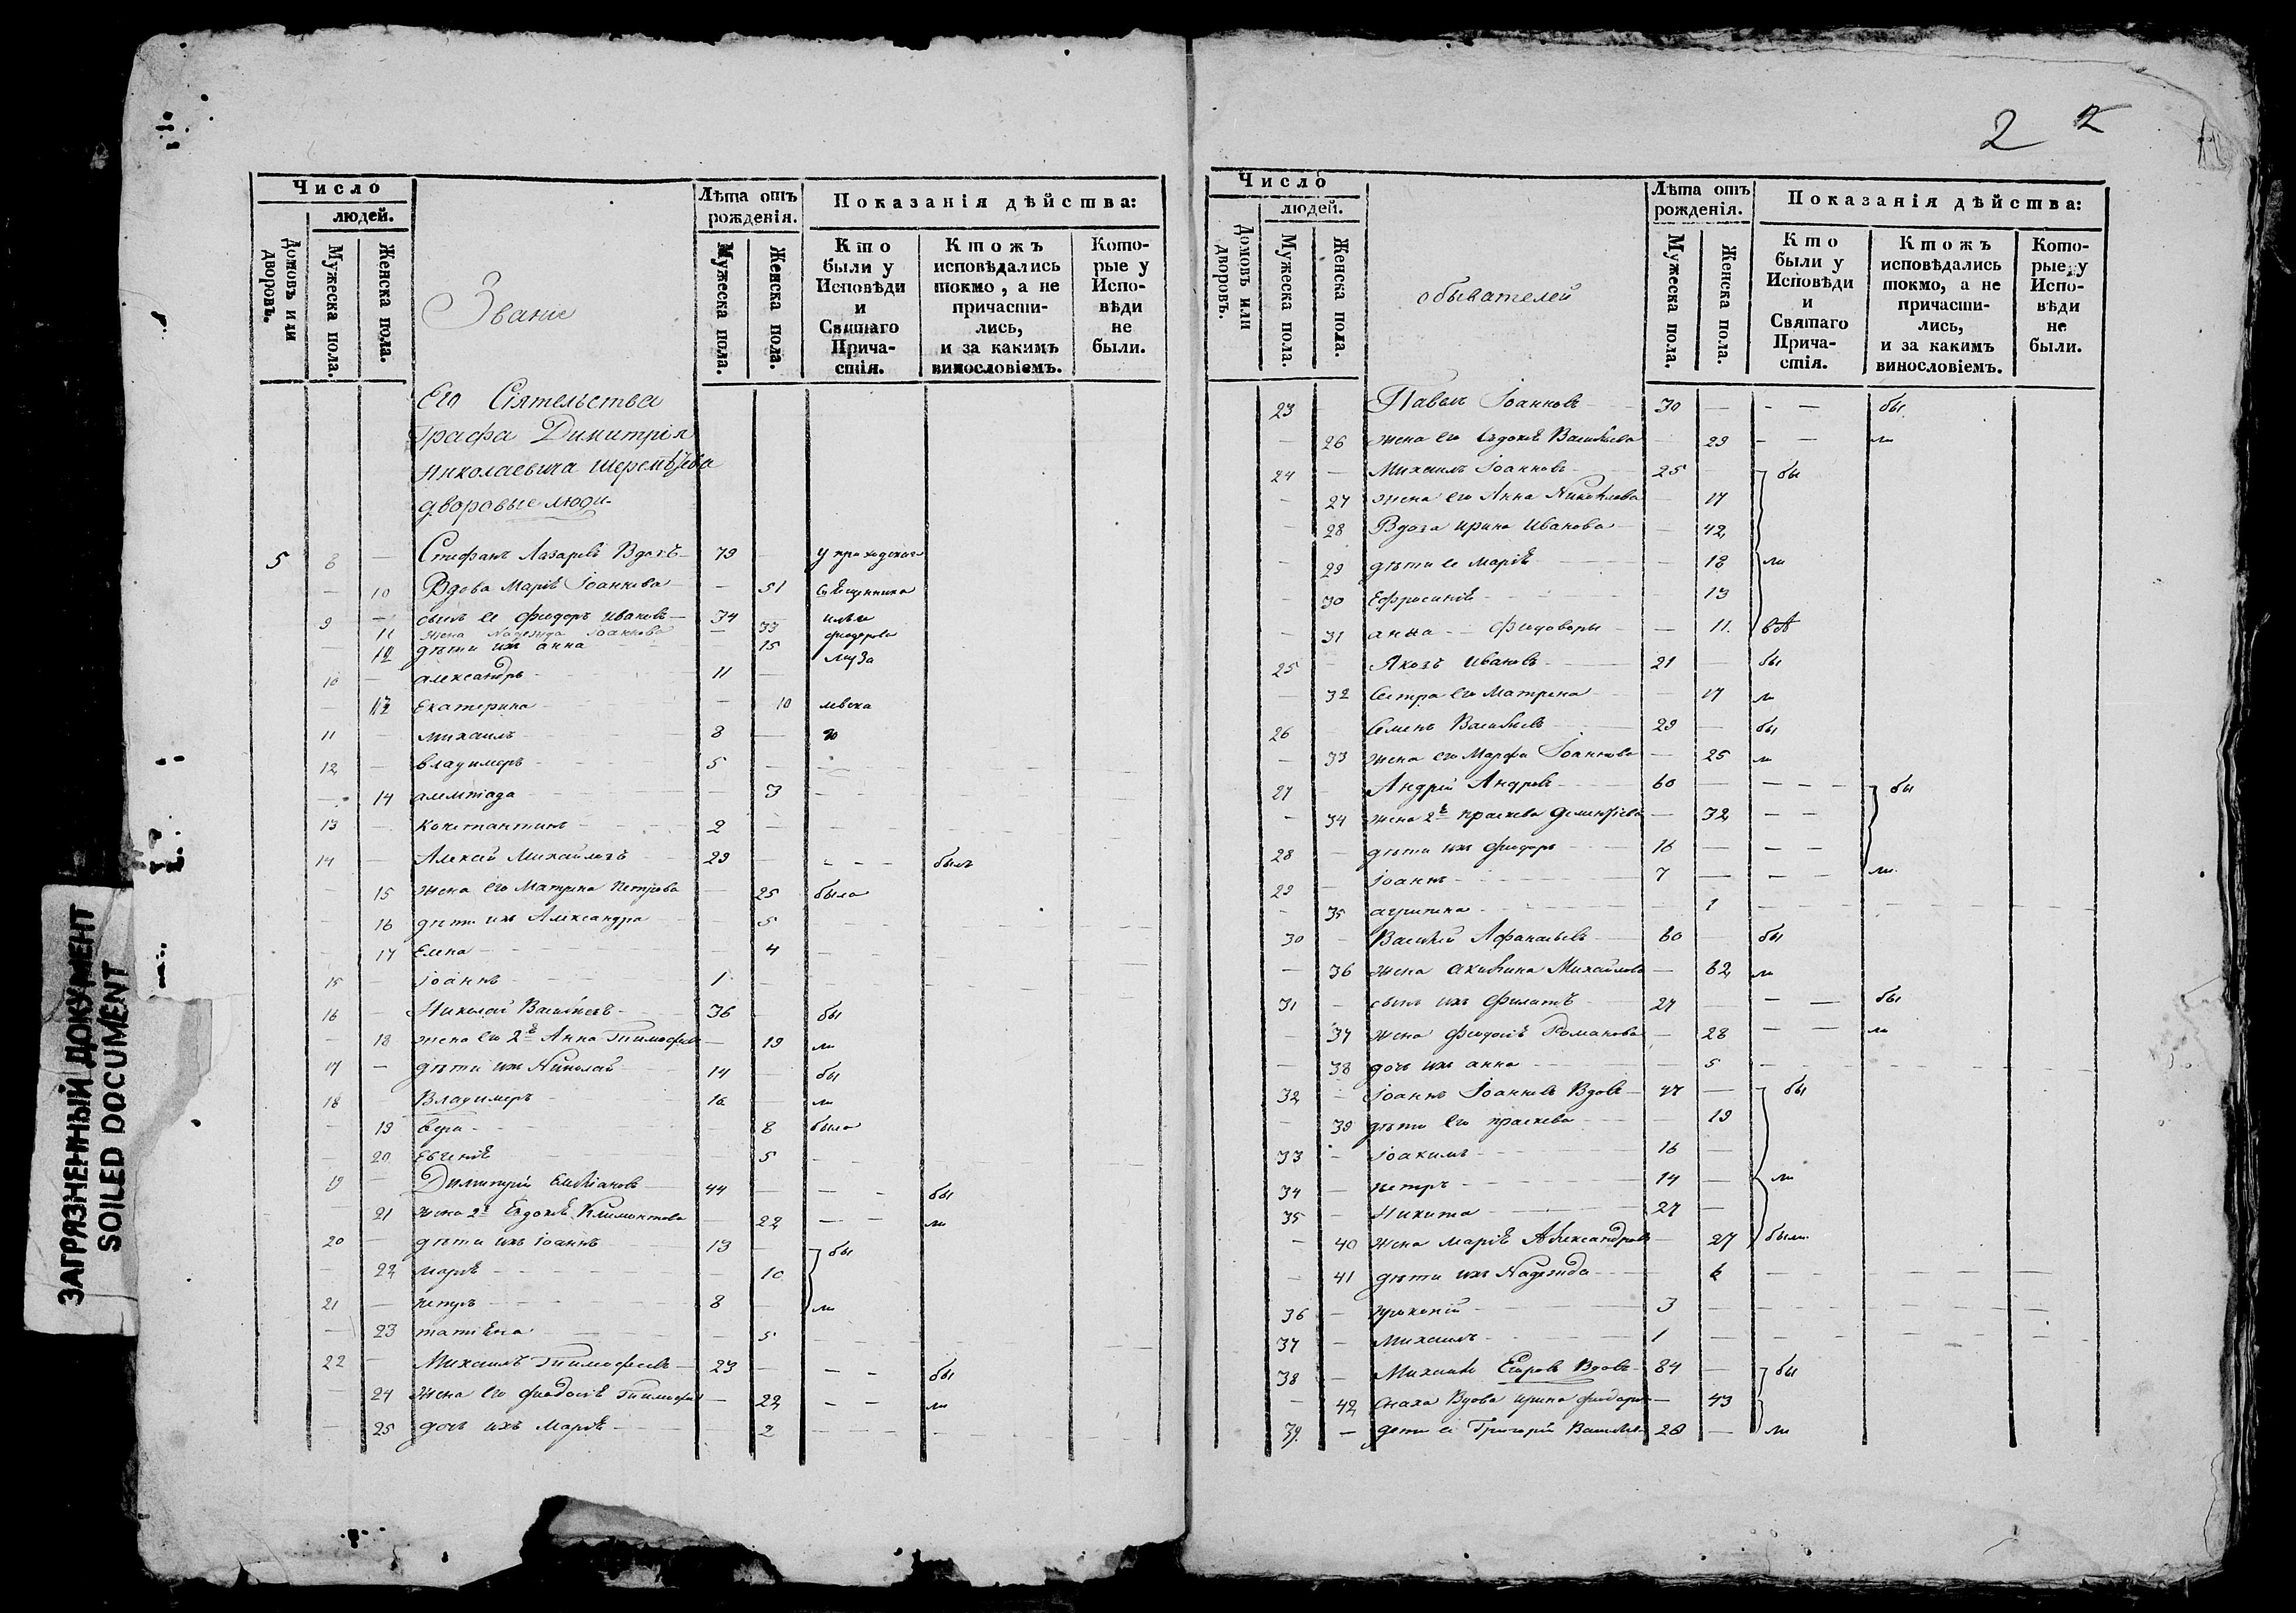 Число
людей.
Домовъ или дворовъ.
Мужеска пола.
Женска пола.
Званіе
Лѣта отъ рожденія.
Мужеска пола.
Женска пола.
Показанія дѣйства:
Кто были у Исповѣди и Святаго Причастія.
Ктожъ исповѣдались токмо, а не причастились, и за какимъ винословіемъ.
Которые у Исповѣди не были.
Его Сіятельства
Графа Димитрія
Николаевича Шереметева
дворовые люди
5 8 — Стефанъ Лазаревъ Вдовъ 79 — у приходскаго
— 10 Вдова Маріѣ Іоаннова — 51 Священника
9 — сынъ ея Феодоръ Ивановъ 34
11 жена Надежда Іоаннова — 33
— 12 дѣти ихъ анна 15
10 — александръ 11 —
— 13 Екатерина — 10
11 — михаилъ 8 —
12 — владимеръ 5 —
— 14 3
13 — константинъ 2 —
14 — Алексѣй Михайловъ 29 — былъ
— 15 жена его Матрена Петрова — 25 была
— 16 дѣти ихъ Александра 5
17 Елена 4
15 — іоаннъ 1 —
16 — Николай Васильевъ 36 бы
— 18 жена его 2я Анна Тимофеева — 19 ли
17 — дѣти ихъ Николай 14 бы
18 Владимеръ 12 ли
— 19 вера 8 была
20 Евгеніѣ 5
19 — Димитрій Емельяновъ 44 — бы
21 жена 2я Евдокіѣ Климонтова 22 ли
20 — дѣти ихъ іоаннъ 13 — бы
— 22 маріѣ — 10
21 — петръ 8 — ли
— 23 татіана — 5
22 — Михаилъ Тимофеевъ 23 — бы
— 24 жена его феодосіѣ Тимофеева — 22 ли
— 25 дочь ихъ Маріѣ 2
2 2
Число
людей.
Домовъ или дворовъ.
Мужеска пола.
Женска пола.
обывателей
Лѣта отъ рожденія.
Мужеска пола.
Женска пола.
Показанія дѣйства:
Кто были у Исповѣди и Святаго Причастія.
Ктожъ исповѣдались токмо, а не причастились, и за какимъ винословіемъ.
Которые у Исповѣди не были.
23 — Павелъ Іоанновъ 30 — бы
— 26 жена его Евдокіѣ Васильева 29 ли
24 — Михаилъ Іоанновъ 25 — бы
— 27 жена его Анна 17
28 Вдова ирина Иванова — 42
— 29 дѣти ея Маріѣ — 18 ли
30 Ефросиніѣ 13
31 анна — 11
25 — Яковъ Ивановъ 21 — бы
— 32 Сестра его Матрена 17 ли
26 Семенъ Васильевъ 29 — бы
— 33 жена его Марфа Іоаннова — 25 ли
27 Андрей Андреевъ 60 — бы
— 34 жена 2я праскева Дементіева — 32
28 — дѣти ихъ феодоръ 16 —
29 — іоаннъ 7 — ли
— 35 1
30 — Василій Афанасьевъ 60 бы
— 36 жена акилина Михайлова — 62 ли
31 — сынъ ихъ филатъ 27 — бы
— 37 жена Феодосіѣ Романова — 28 ли
— 38 дочь ихъ анна — 5
32 — іоаннъ Іоанновъ Вдовъ 47 — бы
— 39 дѣти его праскева 19
33 — іоакимъ 16 —
34 — петръ 14 — ли
35 — Никита 27 —
— 40 жена маріѣ Александрова — 27 были
— 41 дѣти ихъ Надежда
36 — прокопій 3 —
37 — михаилъ 1 —
38 — Михаилъ Егоровъ Вдовъ 84 — бы
— 42 снаха Вдова ирина феодорова — 43
39 — дети ея Григорій Васильевъ 20 — ли
ЗАГРЯЗНЕННЫЙ ДОКУМЕНТ
SOILED DOCUMENT